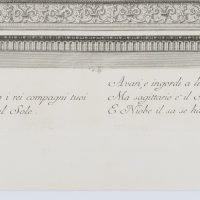 i rei compagni tuoi
l Sole.
Avari e ingordi a l
Ma sagittario è il
E Niobe il sa se ha